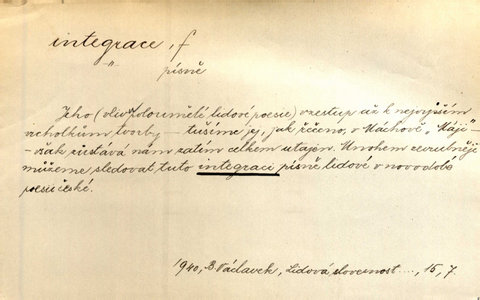 integrace, f
-"- písně
Jeho (vliv poloumělé lidové poesie) vzestup až k nejvyšším
vrcholkům tvorby – tušíme jej, jak řečeno, v Máchově „Máji" –
– však zůstává nám zatím celkem utajen. Mnohem zevrubněji
můžeme sledovat tuto integraci písně lidové v novodobé
poesii české.
1940, B. Václavek, Lidová slovesnost ..., 15, 7.